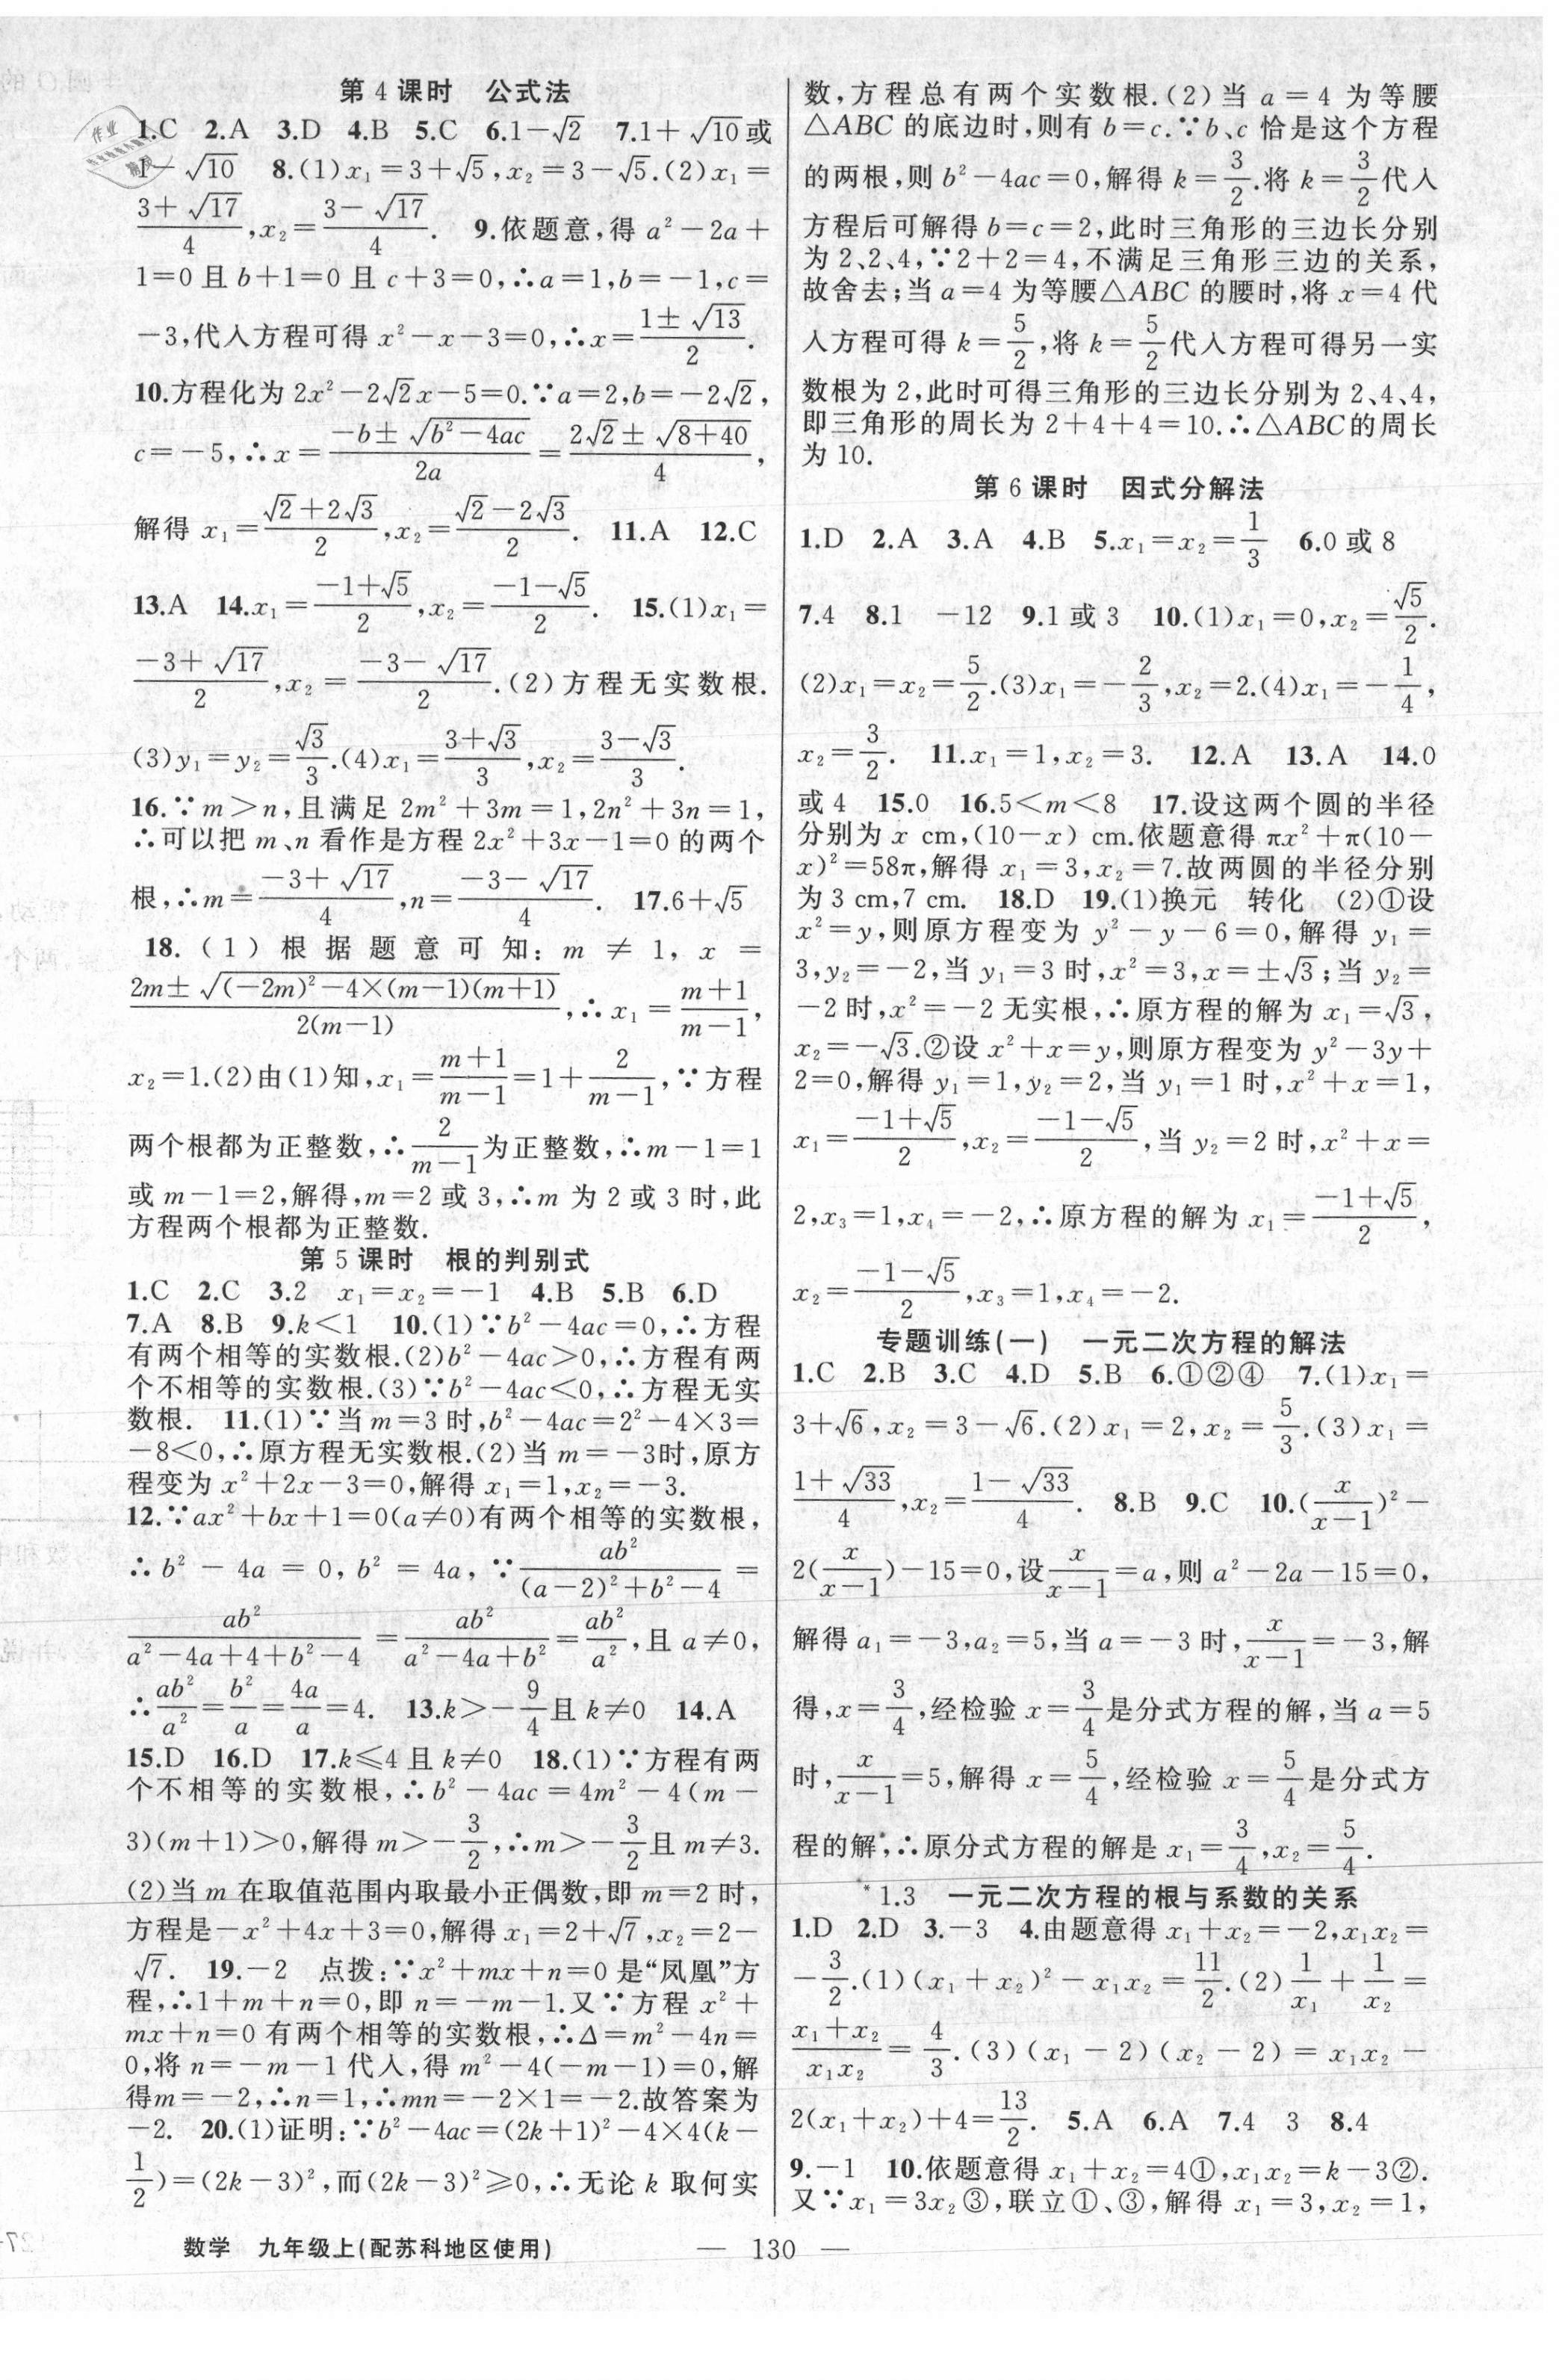 第4课时 公式法
1.C 2.A 3.D 4.B 5.C 6.1−√2 7.1+√10或
1−√10 8.(1)x₁=3+√5,x₂=3−√5.(2)x₁=
(3+√17)/4,x₂=(3−√17)/4. 9.依题意,得a²−2a+
1=0且b+1=0且c+3=0,∴a=1,b=−1,c=
−3,代入方程可得x²−x−3=0,∴x=(1±√13)/2.
10.方程化为2x²−2√2x−5=0.∵a=2,b=−2√2,
c=−5,∴x=(−b±√(b²−4ac))/2a=(2√2±√(8+40))/4,
解得x₁=(√2+2√3)/2,x₂=(√2−2√3)/2. 11.A 12.C
13.A 14.x₁=(−1+√5)/2,x₂=(−1−√5)/2. 15.(1)x₁=
(−3+√17)/2,x₂=(−3−√17)/2.(2)方程无实数根.
(3)y₁=y₂=√3/3.(4)x₁=(3+√3)/3,x₂=(3−√3)/3.
16.∵m>n,且满足2m²+3m=1,2n²+3n=1,
∴可以把m、n看作是方程2x²+3x−1=0的两个
根,∴m=(−3+√17)/4,n=(−3−√17)/4. 17.6+√5
18.(1)根据题意可知:m≠1,x=
(2m±√((−2m)²−4×(m−1)(m+1)))/(2(m−1)),∴x₁=(m+1)/(m−1),
x₂=1.(2)由(1)知,x₁=(m+1)/(m−1)=1+2/(m−1),∵方程
两个根都为正整数,∴2/(m−1)为正整数,∴m−1=1
或m−1=2,解得,m=2或3,∴m为2或3时,此
方程两个根都为正整数.
第5课时 根的判别式
1.C 2.C 3.2 x₁=x₂=−1 4.B 5.B 6.D
7.A 8.B 9.k<1 10.(1)∵b²−4ac=0,∴方程
有两个相等的实数根.(2)b²−4ac>0,∴方程有两
个不相等的实数根.(3)∵b²−4ac<0,∴方程无实
数根. 11.(1)∵当m=3时,b²−4ac=2²−4×3=
−8<0,∴原方程无实数根.(2)当m=−3时,原方
程变为x²+2x−3=0,解得x₁=1,x₂=−3.
12.∵ax²+bx+1=0(a≠0)有两个相等的实数根,
∴b²−4a=0,b²=4a,∵ab²/((a−2)²+b²−4)=
ab²/(a²−4a+4+b²−4)=ab²/(a²−4a+b²)=ab²/a²,且a≠0,
∴ab²/a²=b²/a=4a/a=4. 13.k>−9/4且k≠0 14.A
15.D 16.D 17.k≤4且k≠0 18.(1)∵方程有两
个不相等的实数根,∴b²−4ac=4m²−4(m−
3)(m+1)>0,解得m>−3/2,∴m>−3/2且m≠3.
(2)当m在取值范围内取最小正偶数,即m=2时,
方程是−x²+4x+3=0,解得x₁=2+√7,x₂=2−
√7. 19.−2 点拨:∵x²+mx+n=0是“凤凰”方
程,∴1+m+n=0,即n=−m−1.又∵方程x²+
mx+n=0有两个相等的实数根,∴Δ=m²−4n=
0,将n=−m−1代入,得m²−4(−m−1)=0,解
得m=−2,∴n=1,∴mn=−2×1=−2.故答案为
−2. 20.(1)证明:∵b²−4ac=(2k+1)²−4×4(k−
1/2)=(2k−3)²,而(2k−3)²≥0,∴无论k取何实
数,方程总有两个实数根.(2)当a=4为等腰
△ABC的底边时,则有b=c.∵b、c恰是这个方程
的两根,则b²−4ac=0,解得k=3/2.将k=3/2代入
方程后可解得b=c=2,此时三角形的三边长分别
为2、2、4,∵2+2=4,不满足三角形三边的关系,
故舍去;当a=4为等腰△ABC的腰时,将x=4代
入方程可得k=5/2,将k=5/2代入方程可得另一实
数根为2,此时可得三角形的三边长分别为2、4、4,
即三角形的周长为2+4+4=10.∴△ABC的周长
为10.
第6课时 因式分解法
1.D 2.A 3.A 4.B 5.x₁=x₂=1/3 6.0或8
7.4 8.1 −12 9.1或3 10.(1)x₁=0,x₂=√5/2.
(2)x₁=x₂=5/2.(3)x₁=−2/3,x₂=2.(4)x₁=−1/4,
x₂=3/2. 11.x₁=1,x₂=3. 12.A 13.A 14.0
或4 15.0 16.5<m<8 17.设这两个圆的半径
分别为x cm,(10−x) cm.依题意得πx²+π(10−
x)²=58π,解得x₁=3,x₂=7.故两圆的半径分别
为3 cm,7 cm. 18.D 19.(1)换元 转化 (2)①设
x²=y,则原方程变为y²−y−6=0,解得y₁=
3,y₂=−2,当y₁=3时,x²=3,x=±√3;当y₂=
−2时,x²=−2无实根,∴原方程的解为x₁=√3,
x₂=−√3.②设x²+x=y,则原方程变为y²−3y+
2=0,解得y₁=1,y₂=2,当y₁=1时,x²+x=1,
x₁=(−1+√5)/2,x₂=(−1−√5)/2,当y₂=2时,x²+x=
2,x₃=1,x₄=−2,∴原方程的解为x₁=(−1+√5)/2,
x₂=(−1−√5)/2,x₃=1,x₄=−2.
专题训练(一) 一元二次方程的解法
1.C 2.B 3.C 4.D 5.B 6.①②④ 7.(1)x₁=
3+√6,x₂=3−√6.(2)x₁=2,x₂=5/3.(3)x₁=
(1+√33)/4,x₂=(1−√33)/4. 8.B 9.C 10.(x/(x−1))²−
2(x/(x−1))−15=0,设x/(x−1)=a,则a²−2a−15=0,
解得a₁=−3,a₂=5,当a=−3时,x/(x−1)=−3,解
得,x=3/4,经检验x=3/4是分式方程的解,当a=5
时,x/(x−1)=5,解得x=5/4,经检验x=5/4是分式方
程的解,∴原分式方程的解是x₁=3/4,x₂=5/4.
*1.3 一元二次方程的根与系数的关系
1.D 2.D 3.−3 4.由题意得x₁+x₂=−2,x₁x₂=
−3/2.(1)(x₁+x₂)²−x₁x₂=11/2.(2)1/x₁+1/x₂=
(x₁+x₂)/(x₁x₂)=4/3.(3)(x₁−2)(x₂−2)=x₁x₂−
2(x₁+x₂)+4=13/2. 5.A 6.A 7.4 3 8.4
9.−1 10.依题意得x₁+x₂=4①,x₁x₂=k−3②.
又∵x₁=3x₂③,联立①、③,解得x₁=3,x₂=1,
数学 九年级上(配苏科地区使用)
— 130 —